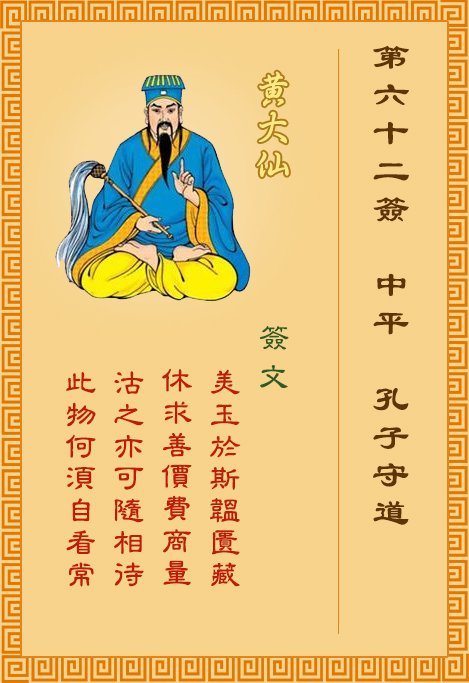 第六十二簽 中平 孔子守道
黃大仙
簽文
美玉於斯韞匱藏
休求善價費商量
沽之亦可隨相待
此物何須自看常